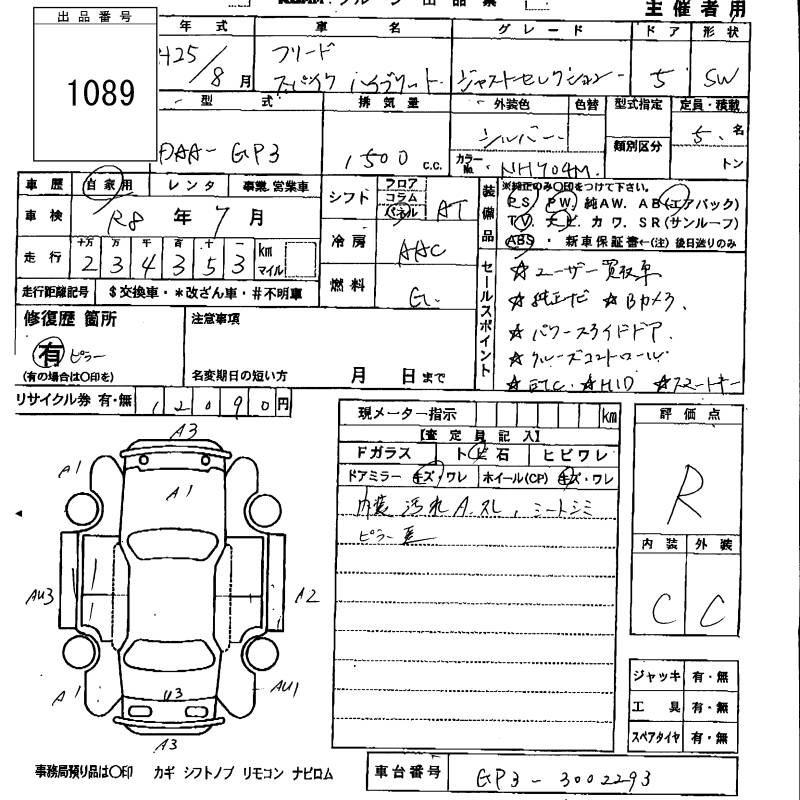 出品番号
1089
主催者用
年式 車名 グレード ドア 形状
H25/8月 フリード スパイク ハイブリット. ジャストセレクション 5 SW
型式 排気量 外装色 色替 型式指定 定員・積載
DAA-GP3 1500 c.c. シルバー 類別区分 5.名
カラーNo. NH704M. トン
車歴 自家用 レンタ 事業 営業車
車検 R8年7月
走行 十万 万 千 百 十 km マイル
2 3 4 3 5 3
走行距離記号 $交換車・*改ざん車・#不明車
シフト フロア コラム パネル AT
冷房 AAC
燃料 G.
装備品
※純正のみ〇印をつけて下さい。
P.S. P.W. 純AW. AB(エアバック)
T.V. ナビ. カワ. SR(サンルーフ)
ABS・新車保証書←(注)後日送りのみ
セールスポイント
☆ユーザー買取車
☆純正ナビ ☆Bカメラ.
☆パワースライドドア.
☆クルーズコントロール.
☆ETC. ☆HID ☆スマートキー
修復歴 箇所
有 ピラー
(有の場合は〇印を)
注意事項
名変期日の短い方 月 日まで
リサイクル券 有・無 12090円
現メーター指示 km
【査定員記入】
Fガラス トビ石 ヒビワレ
ドアミラー キズ・ワレ ホイール(CP) キズ・ワレ
内装 汚れ A.スレ, シートシミ
ピラー
評価点
R
内装 外装
C C
A3
A1
A1
AU3
A2
A1
U3
AU1
A3
ジャッキ 有・無
工具 有・無
スペアタイヤ 有・無
事務局預り品は〇印 カギ シフトノブ リモコン ナビロム
車台番号 GP3-3002293